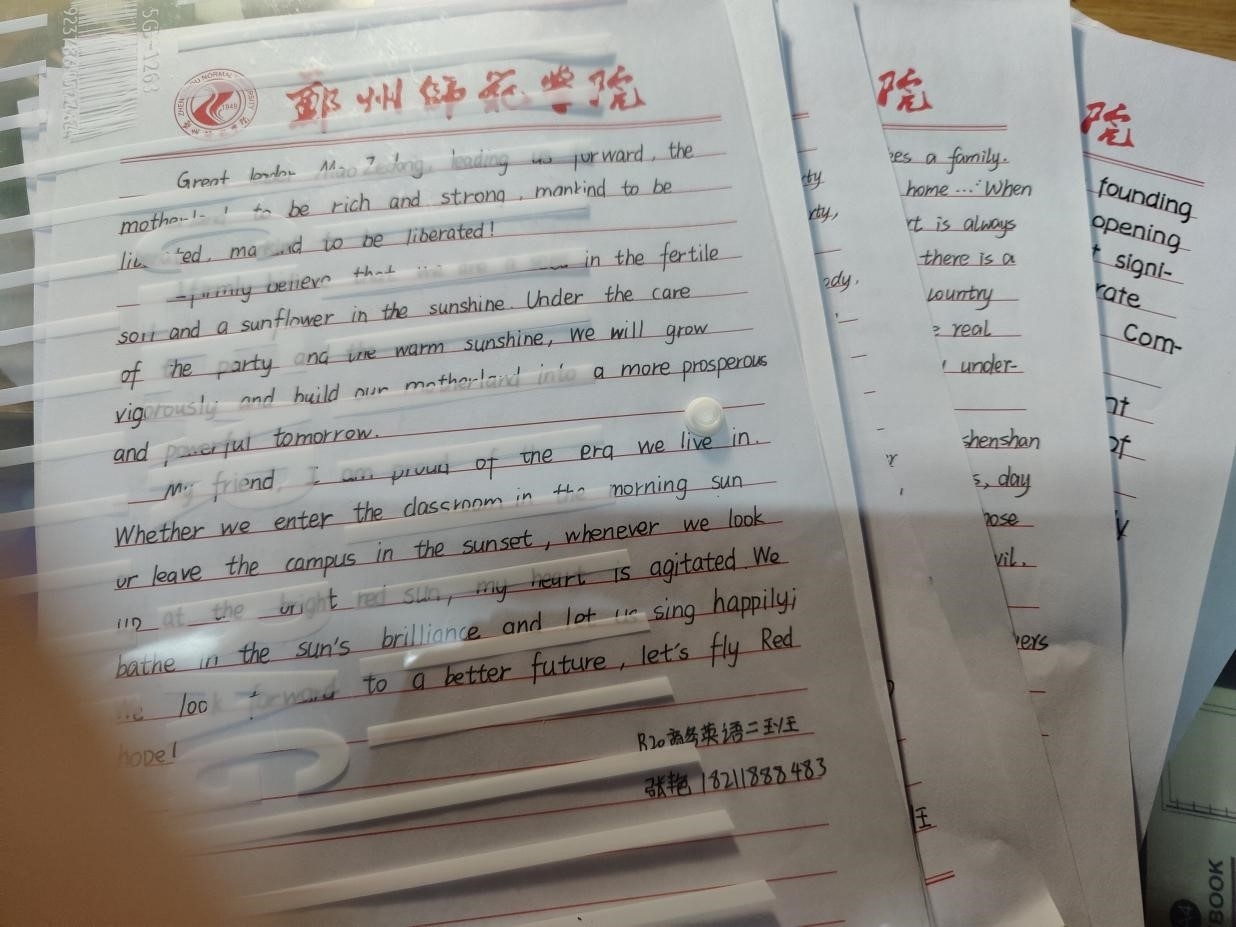 5GS-Y263
ZHENGZHOU NORMAL
1949
鄭州師範学院
Great leader Mao Zedong, leading us forward, the
motherland to be rich and strong, mankind to be
liberated, mankind to be liberated!
I firmly believe that we are a in the fertile
soil and a sunflower in the sunshine. Under the care
of the party and the warm sunshine, we will grow
vigorously and build our motherland into a more prosperous
and powerful tomorrow.
My friend, I am proud of the era we live in.
Whether we enter the classroom in the morning sun
or leave the campus in the sunset, whenever we look
up at the bright red sun, my heart is agitated. We
bathe in the sun's brilliance and let us sing happily;
We look forward to a better future, let's fly Red
hope!
R20商务英语二班
张艳 18211888483
院
a family.
home ...." When
is always
there is a
country
real
under-
shenshan
day
院
founding
opening
signi-
rate
Com-
of
BOOK
A4